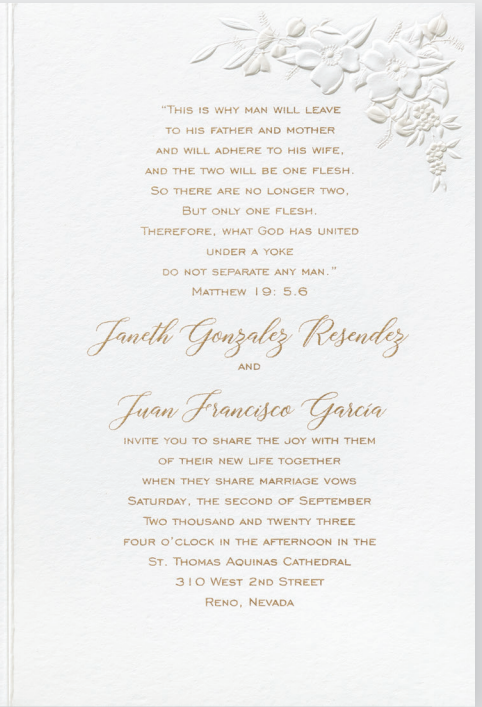 “This is why man will leave
to his father and mother
and will adhere to his wife,
and the two will be one flesh.
So there are no longer two,
But only one flesh.
Therefore, what God has united
under a yoke
do not separate any man.”
Matthew 19: 5.6
Janeth Gonzalez Resendez
and
Juan Francisco García
invite you to share the joy with them
of their new life together
when they share marriage vows
Saturday, the second of September
Two thousand and twenty three
four o’clock in the afternoon in the
St. Thomas Aquinas Cathedral
310 West 2nd Street
Reno, Nevada